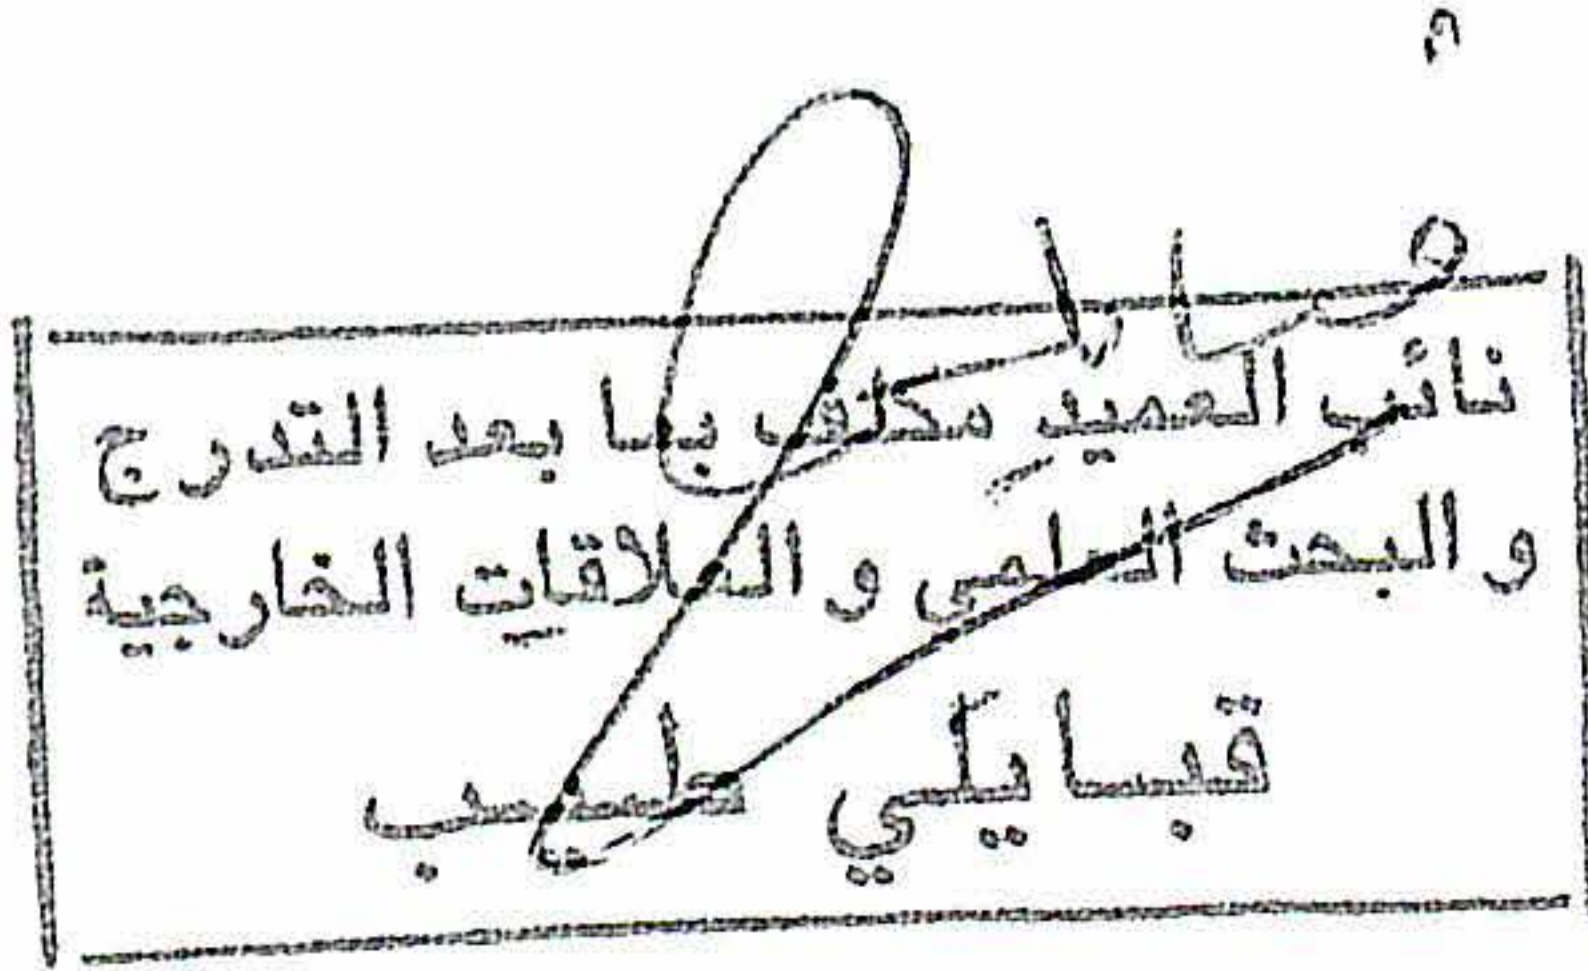 نائب العميد مكلف بما بعد التدرج
و البحث العلمي و العلاقات الخارجية
قبايلي